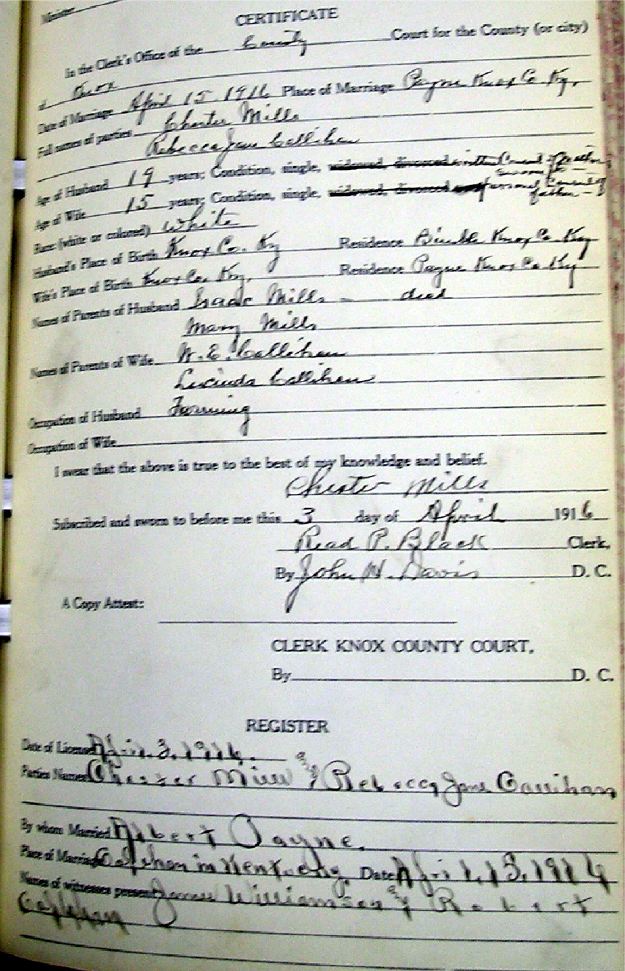 Minister
CERTIFICATE
In the Clerk's Office of the County Court for the County (or city)
of Knox
Date of Marriage April 15, 1916 Place of Marriage Payne Knox Co. Ky,
Full names of parties Chester Mills
Rebecca Jane Callihan
Age of Husband 19 years; Condition, single, widowed, divorced written Consent of mother
Age of Wife 15 years; Condition, single, widowed, divorced personal Consent of father
Race (white or colored) White
Husband's Place of Birth Knox Co. Ky Residence Knox Co. Ky
Wife's Place of Birth Knox Co. Ky. Residence Payne Knox Co. Ky
Names of Parents of Husband Isaac Mills - died
Mary Mills
Names of Parents of Wife W. E. Callihan
Lucinda Callihan
Occupation of Husband Farming
Occupation of Wife
I swear that the above is true to the best of my knowledge and belief.
Chester Mills
Subscribed and sworn to before me this 3 day of April 1916
Read P. Black Clerk,
By John H. Davis D. C.
A Copy Attest:
CLERK KNOX COUNTY COURT,
By D. C.
REGISTER
Date of License April. 3, 1916.
Parties Names Chester Mills & Rebecca Jane Callihan
By whom Married Albert Payne.
Place of Marriage in Kentucky. Date April. 15, 1916
Names of witnesses present James Williamson & Robert